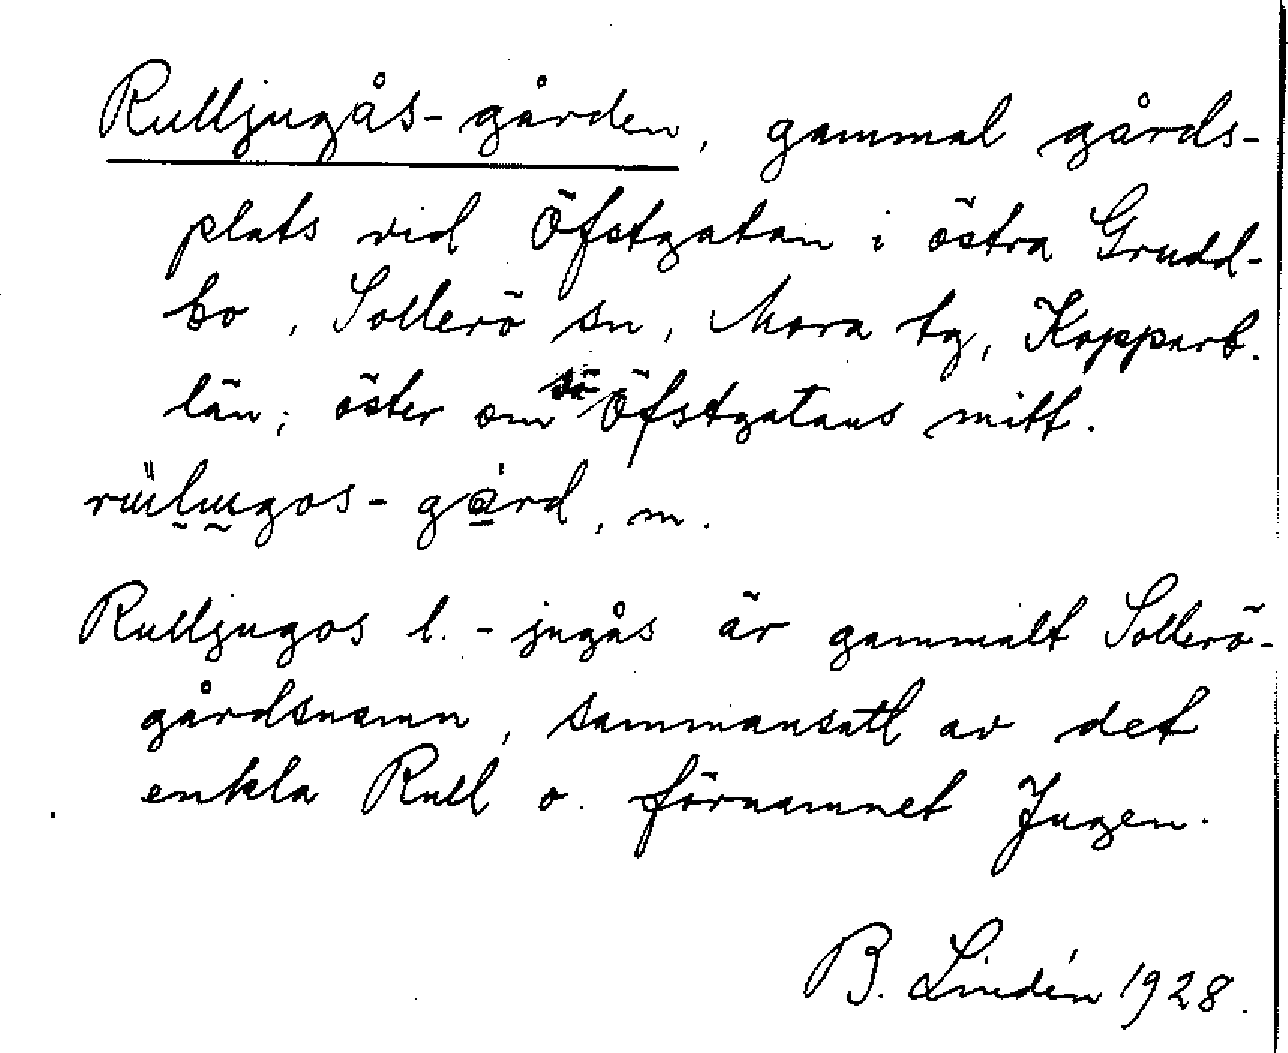 Rulljugås-gården, gammal gårds-
plats vid Öfstgatan i östra Grudd-
bo, Sollerö sn, Mora tg, Kopparb.
län; öster om Öfstgatans mitt.
gård, m.
Rulljugos l. -jugås är gammalt Sollerö-
gårdsnamn, sammansatt av det
enkla Rull o. förnamnet Jugen.
B. Lindén 1928.